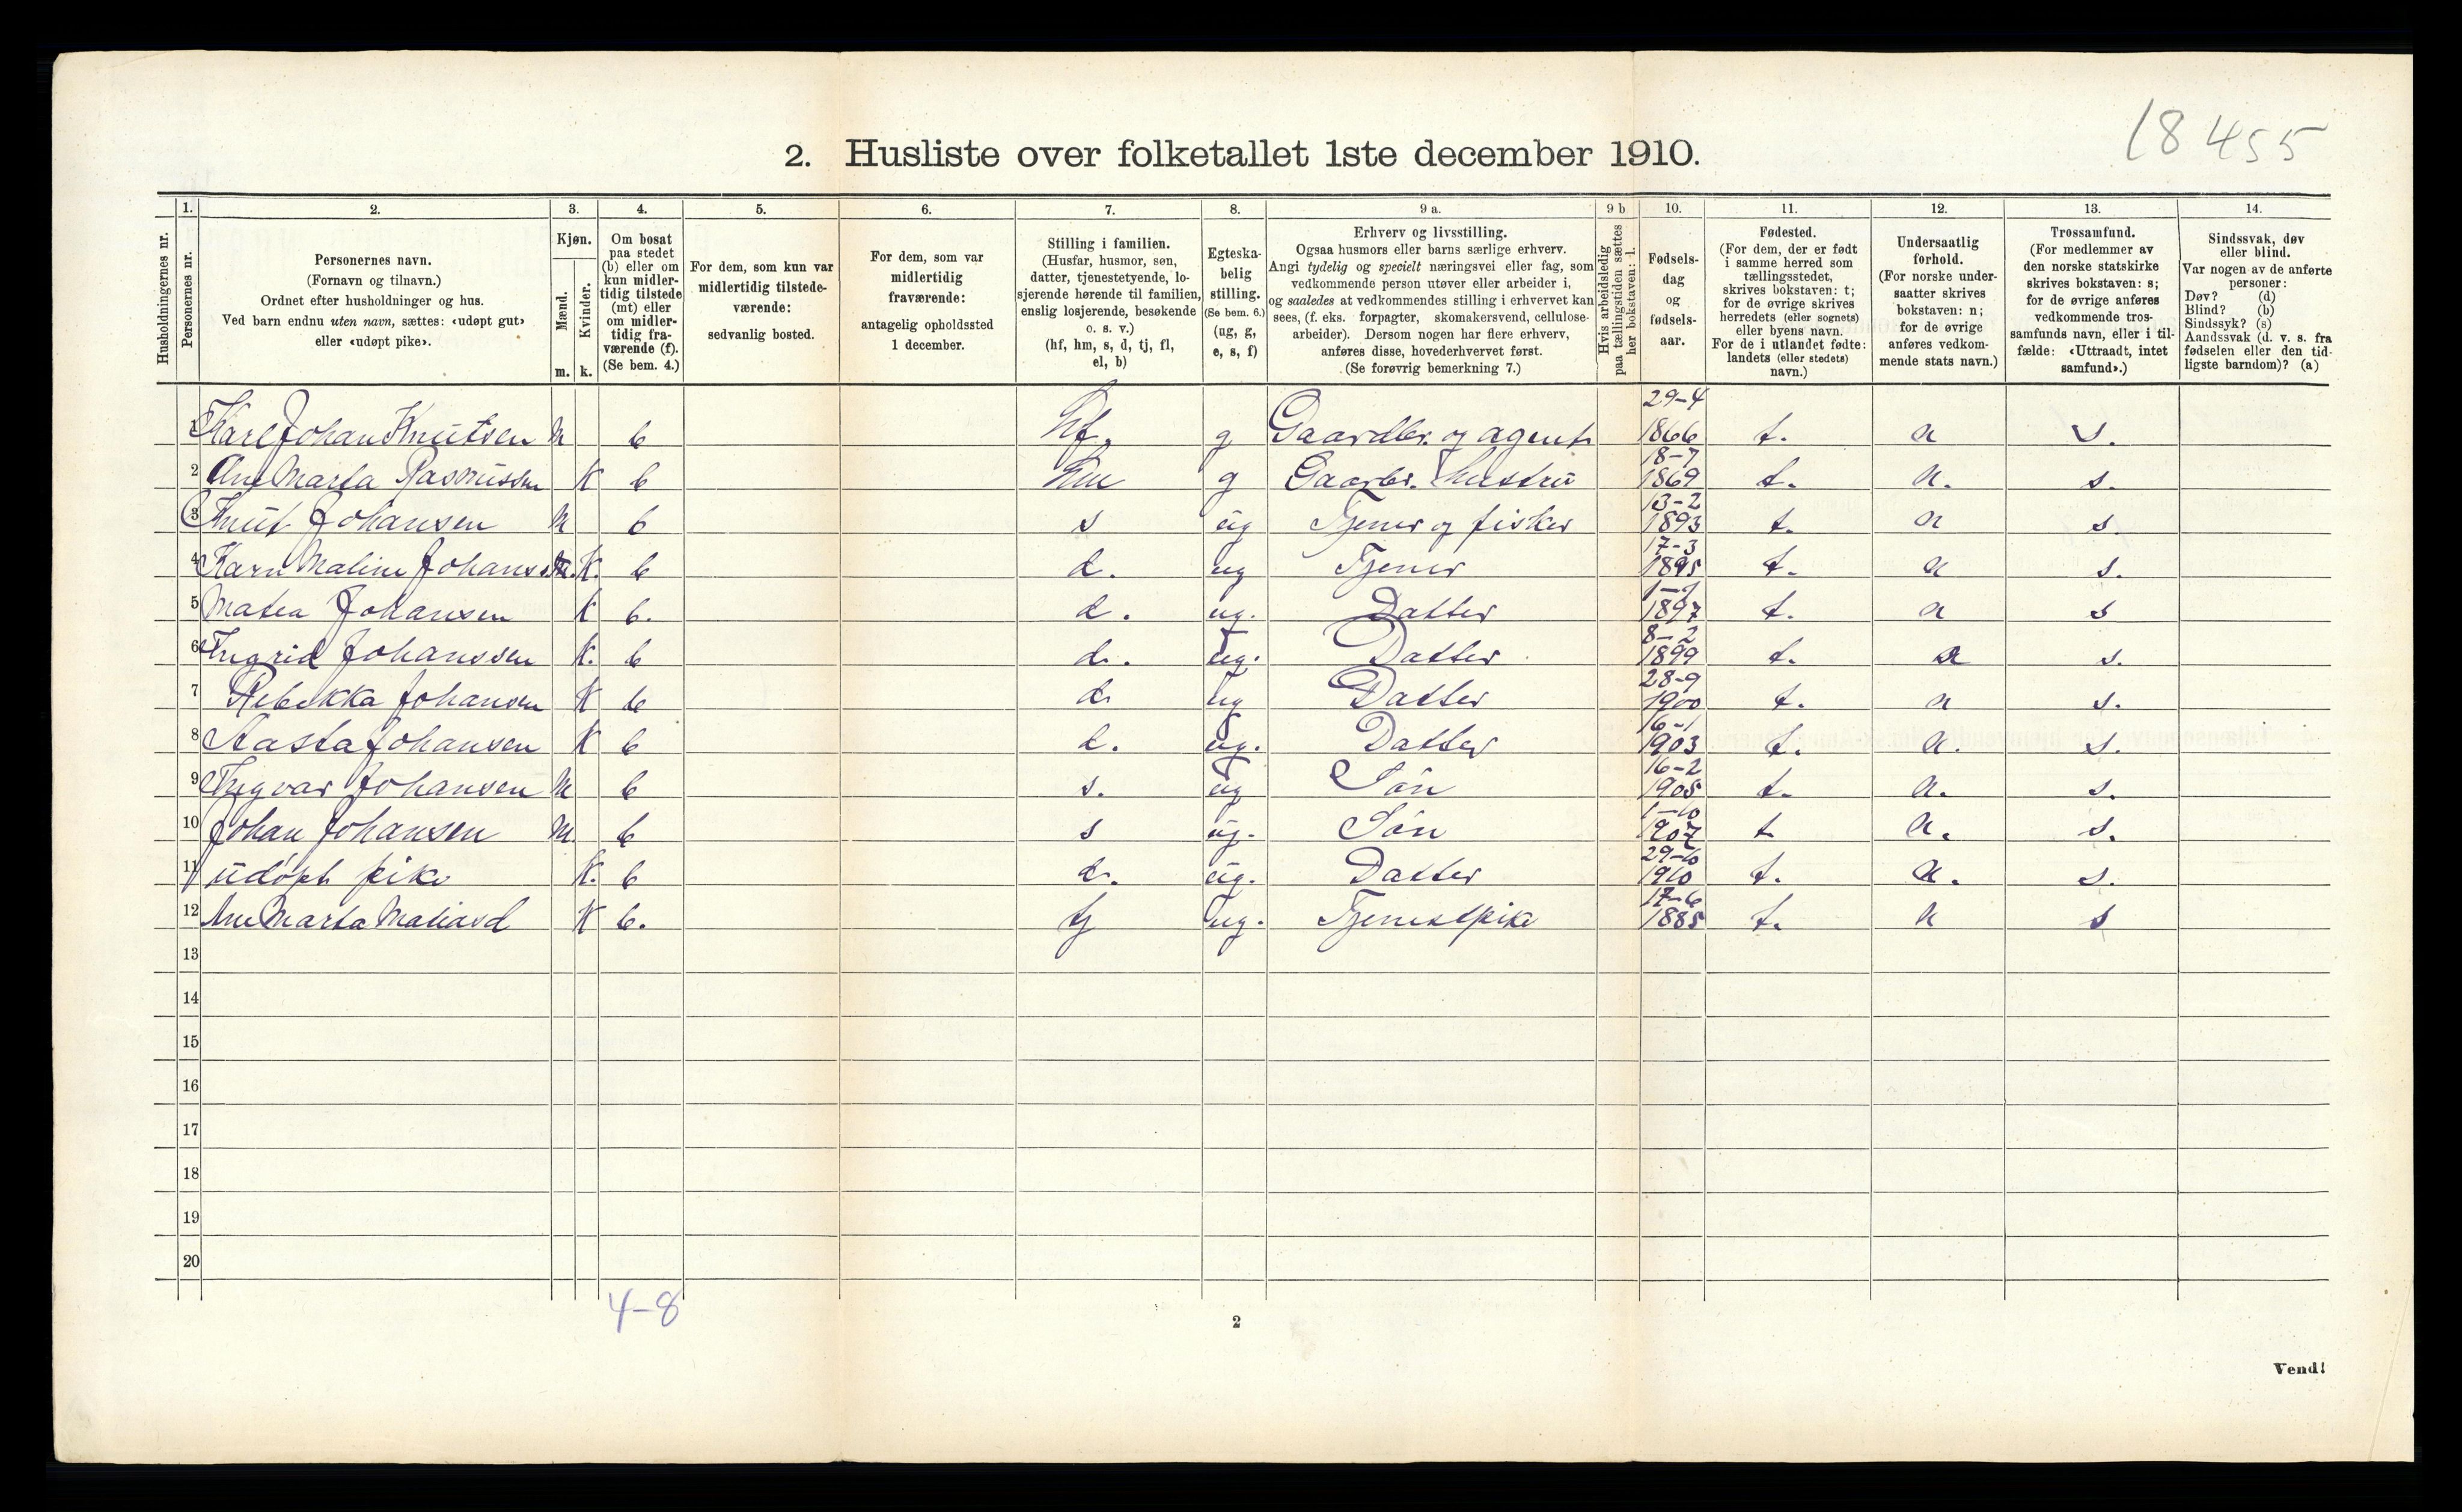 18455
2. Husliste over folketallet 1ste december 1910.
1. 2. 3. 4. 5. 6. 7. 8. 9 a. 9 b 10. 11. 12. 13. 14.
Husholdningernes nr.
Personernes nr.
Personernes navn.
(Fornavn og tilnavn.)
Ordnet efter husholdninger og hus.
Ved barn endnu uten navn, sættes: «udøpt gut»
eller «udøpt pike».
Kjøn.
Mænd.
Kvinder.
m. k.
Om bosat
paa stedet
(b) eller om
kun midler-
tidig tilstede
(mt) eller
om midler-
tidig fra-
værende (f).
(Se bem. 4.)
For dem, som kun var
midlertidig tilstede-
værende:
sedvanlig bosted.
For dem, som var
midlertidig
fraværende:
antagelig opholdssted
1 december.
Stilling i familien.
(Husfar, husmor, søn,
datter, tjenestetyende, lo-
sjerende hørende til familien,
enslig losjerende, besøkende
o. s. v.)
(hf, hm, s, d, tj, fl,
el, b)
Egteska-
belig
stilling.
(Se bem. 6.)
(ug, g,
e, s, f)
Erhverv og livsstilling.
Ogsaa husmors eller barns særlige erhverv.
Angi tydelig og specielt næringsvei eller fag, som
vedkommende person utøver eller arbeider i,
og saaledes at vedkommendes stilling i erhvervet kan
sees, (f. eks. forpagter, skomakersvend, cellulose-
arbeider). Dersom nogen har flere erhverv,
anføres disse, hovederhvervet først.
(Se forøvrig bemerkning 7.)
Hvis arbeidsledig
paa tællingstiden sættes
her bokstaven: l.
Fødsels-
dag
og
fødsels-
aar.
Fødested.
(For dem, der er født
i samme herred som
tællingsstedet,
skrives bokstaven: t;
for de øvrige skrives
herredets (eller sognets)
eller byens navn.
For de i utlandet fødte:
landets (eller stedets)
navn.)
Undersaatlig
forhold.
(For norske under-
saatter skrives
bokstaven: n;
for de øvrige
anføres vedkom-
mende stats navn.)
Trossamfund.
(For medlemmer av
den norske statskirke
skrives bokstaven: s;
for de øvrige anføres
vedkommende tros-
samfunds navn, eller i til-
fælde: «Uttraadt, intet
samfund».)
Sindssvak, døv
eller blind.
Var nogen av de anførte
personer:
Døv? (d)
Blind? (b)
Sindssyk? (s)
Aandssvak (d. v. s. fra
fødselen eller den tid-
ligste barndom)? (a)
1 Karl Johan Knutsen M b hf. g Gaardbr. og agent 29-4 1866 t. n s.
2 Ane Marta Rasmussen K b hm g Gaarbr. hustru 18-7 1869 t. n. s.
3 Knut Johansen M b s ug Tjener og fisker 13-2 1893 t. n s.
4 Karn Maline Johanss K. b d. ug Tjener 17-3 1895 t. n s.
5 Matea Johansen K b. d. ug. Datter 1897 t. n s
6 Ingrid Johanssen K. b d. ug. Datter 8-2 1899 t. n s.
7 Rebekka Johansen K b d ug Datter 28-9 1900 t. n s.
8 Aasta Johansen K b d. ug. Datter 16-1 1903 t. n. s.
9 Ingvar Johansen M b s. ug Søn 16-2 1905 t. n. s.
10 Johan Johansen M b s ug. Søn 1-10 1907 t n. s.
11 udøpt pike K. b d. ug. Datter 29-6 1910 t. n. s.
12 Ane Marta Matiasd K b. tj ug. Tjenestpike 17-6 1885 t. n s
13
14
15
16
17
18
19
20
4-8
2
Vend!